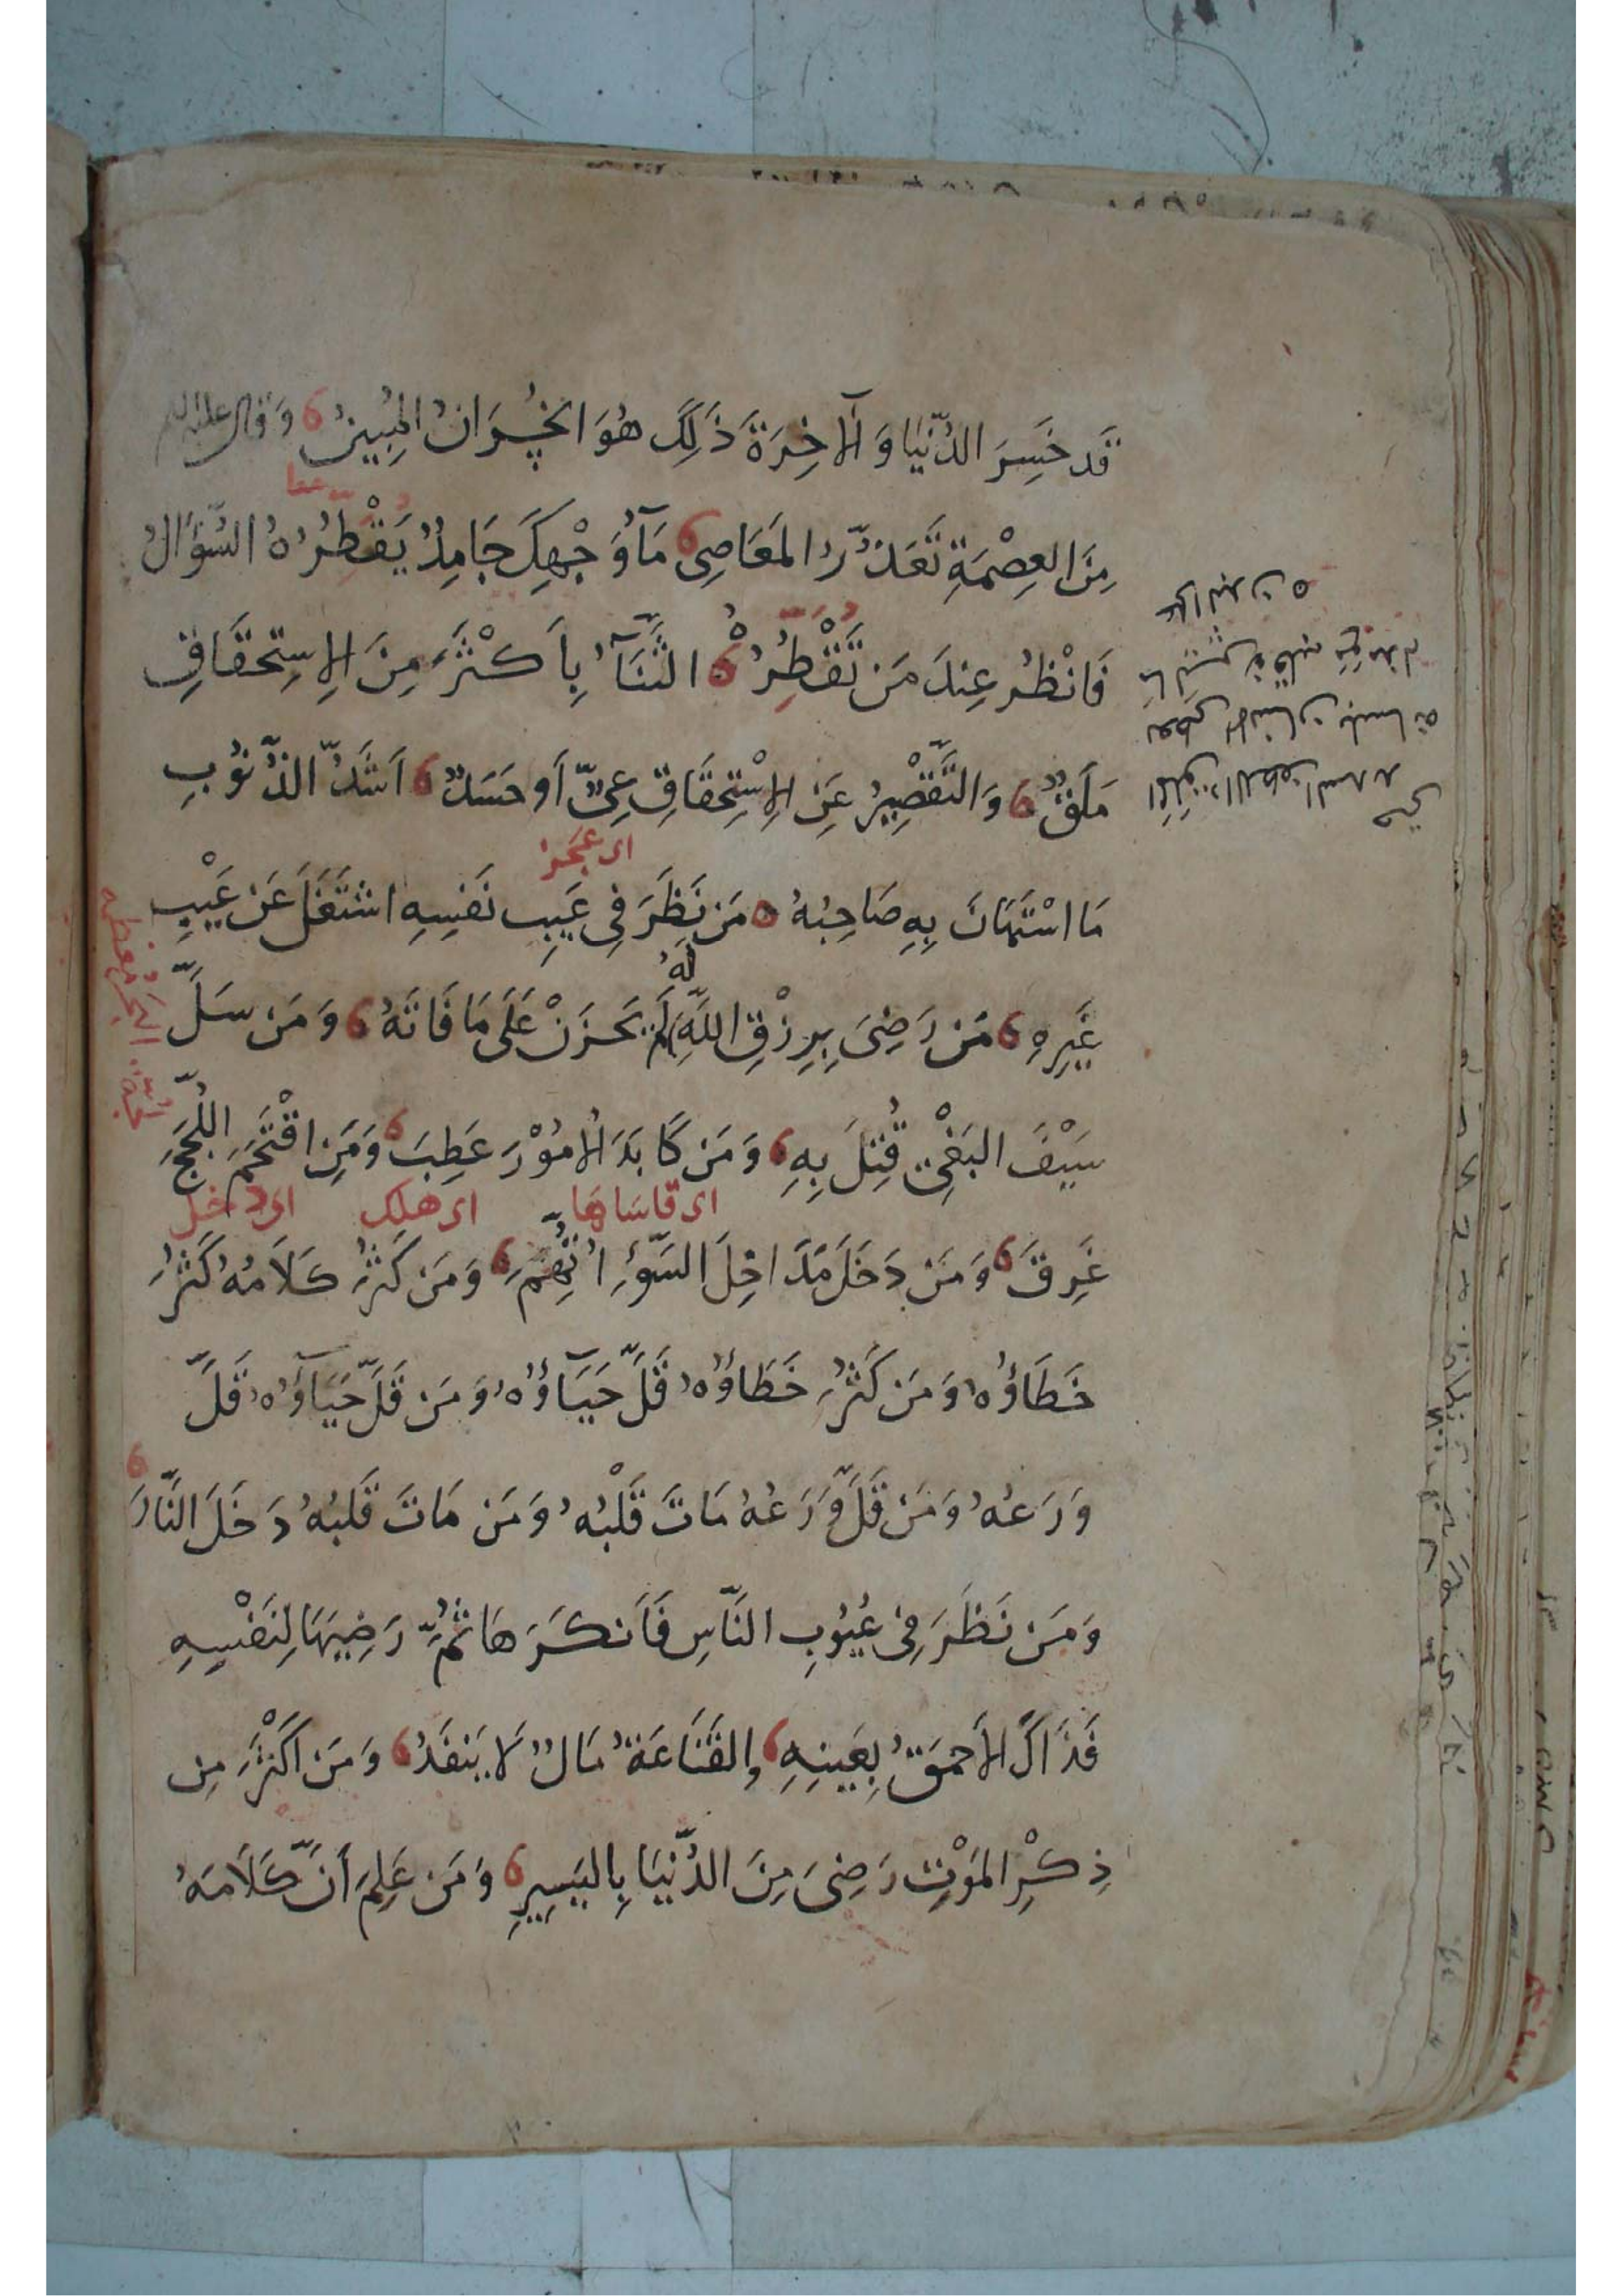 قَد خَسِرَ الدُّنْيَا وَ الْآخِرَةَ ذَلِكَ هُوَ الْخُسْرَانُ الْمُبِينُ وَ قَالَ عليه السلم
مِنَ العِصْمَةِ تَعَذُّرُ المَعَاصِى مَآءُ وَجْهِكَ جَامِدٌ يُقْطِرُهُ السُّؤَالُ
فَانْظُر عِندَ مَن تُقْطِرُهُ الثَّنَآءُ بِأَكْثَرَ مِنَ الِاستِحقَاقِ
مَلَقٌ وَ التَّقْصِيرُ عَنِ الِاسْتِحقَاقِ عِىٌّ أَو حَسَدٌ اَشَدُّ الذُّنُوبِ
اى عجز
مَا اسْتَهَانَ بِهِ صَاحِبُهُ مَن نَظَرَ فِى عَيبِ نَفسِهِ اشتَغَلَ عَن عَيْبِ
غَيرِهِ مَن رَضِىَ بِرِزْقِ اللَّهِ لَهُ لَم يَحزَنْ عَلَى مَا فَاتَهُ وَ مَن سَلَّ
سَيْفَ البَغْىِ قُتِلَ بِهِ وَ مَن كَابَدَ الأُمُوْرَ عَطِبَ وَ مَنِ اقْتَحَمَ اللُّجَجَ
اى قاساها اى هلك اى دخل
غَرِقَ وَ مَن دَخَلَ مَدَاخِلَ السُّوءِ اتُّهِمَ وَ مَن كَثُرَ كَلَامُهُ كَثُرَ
خَطَاؤُهُ وَ مَن كَثُرَ خَطَاؤُهُ قَلَّ حَيَآؤُهُ وَ مَن قَلَّ حَيَآؤُهُ قَلَّ
وَرَعُهُ وَ مَن قَلَّ وَرَعُهُ مَاتَ قَلْبُهُ وَ مَن مَاتَ قَلبُهُ دَخَلَ النَّارَ
وَ مَن نَظَرَ فِى عُيُوبِ النَّاسِ فَاَنكَرَهَا ثُمَّ رَضِيَهَا لِنَفْسِهِ
فَذَاكَ الأَحمَقُ بِعَينِهِ وَ القَنَاعَةُ مَالٌ لَا يَنفَدُ وَ مَن اَكثَرَ مِن
ذِكْرِ المَوْتِ رَضِىَ مِنَ الدُّنيَا بِاليَسِيرِ وَ مَن عَلِمَ أَنَّ كَلَامَهُ